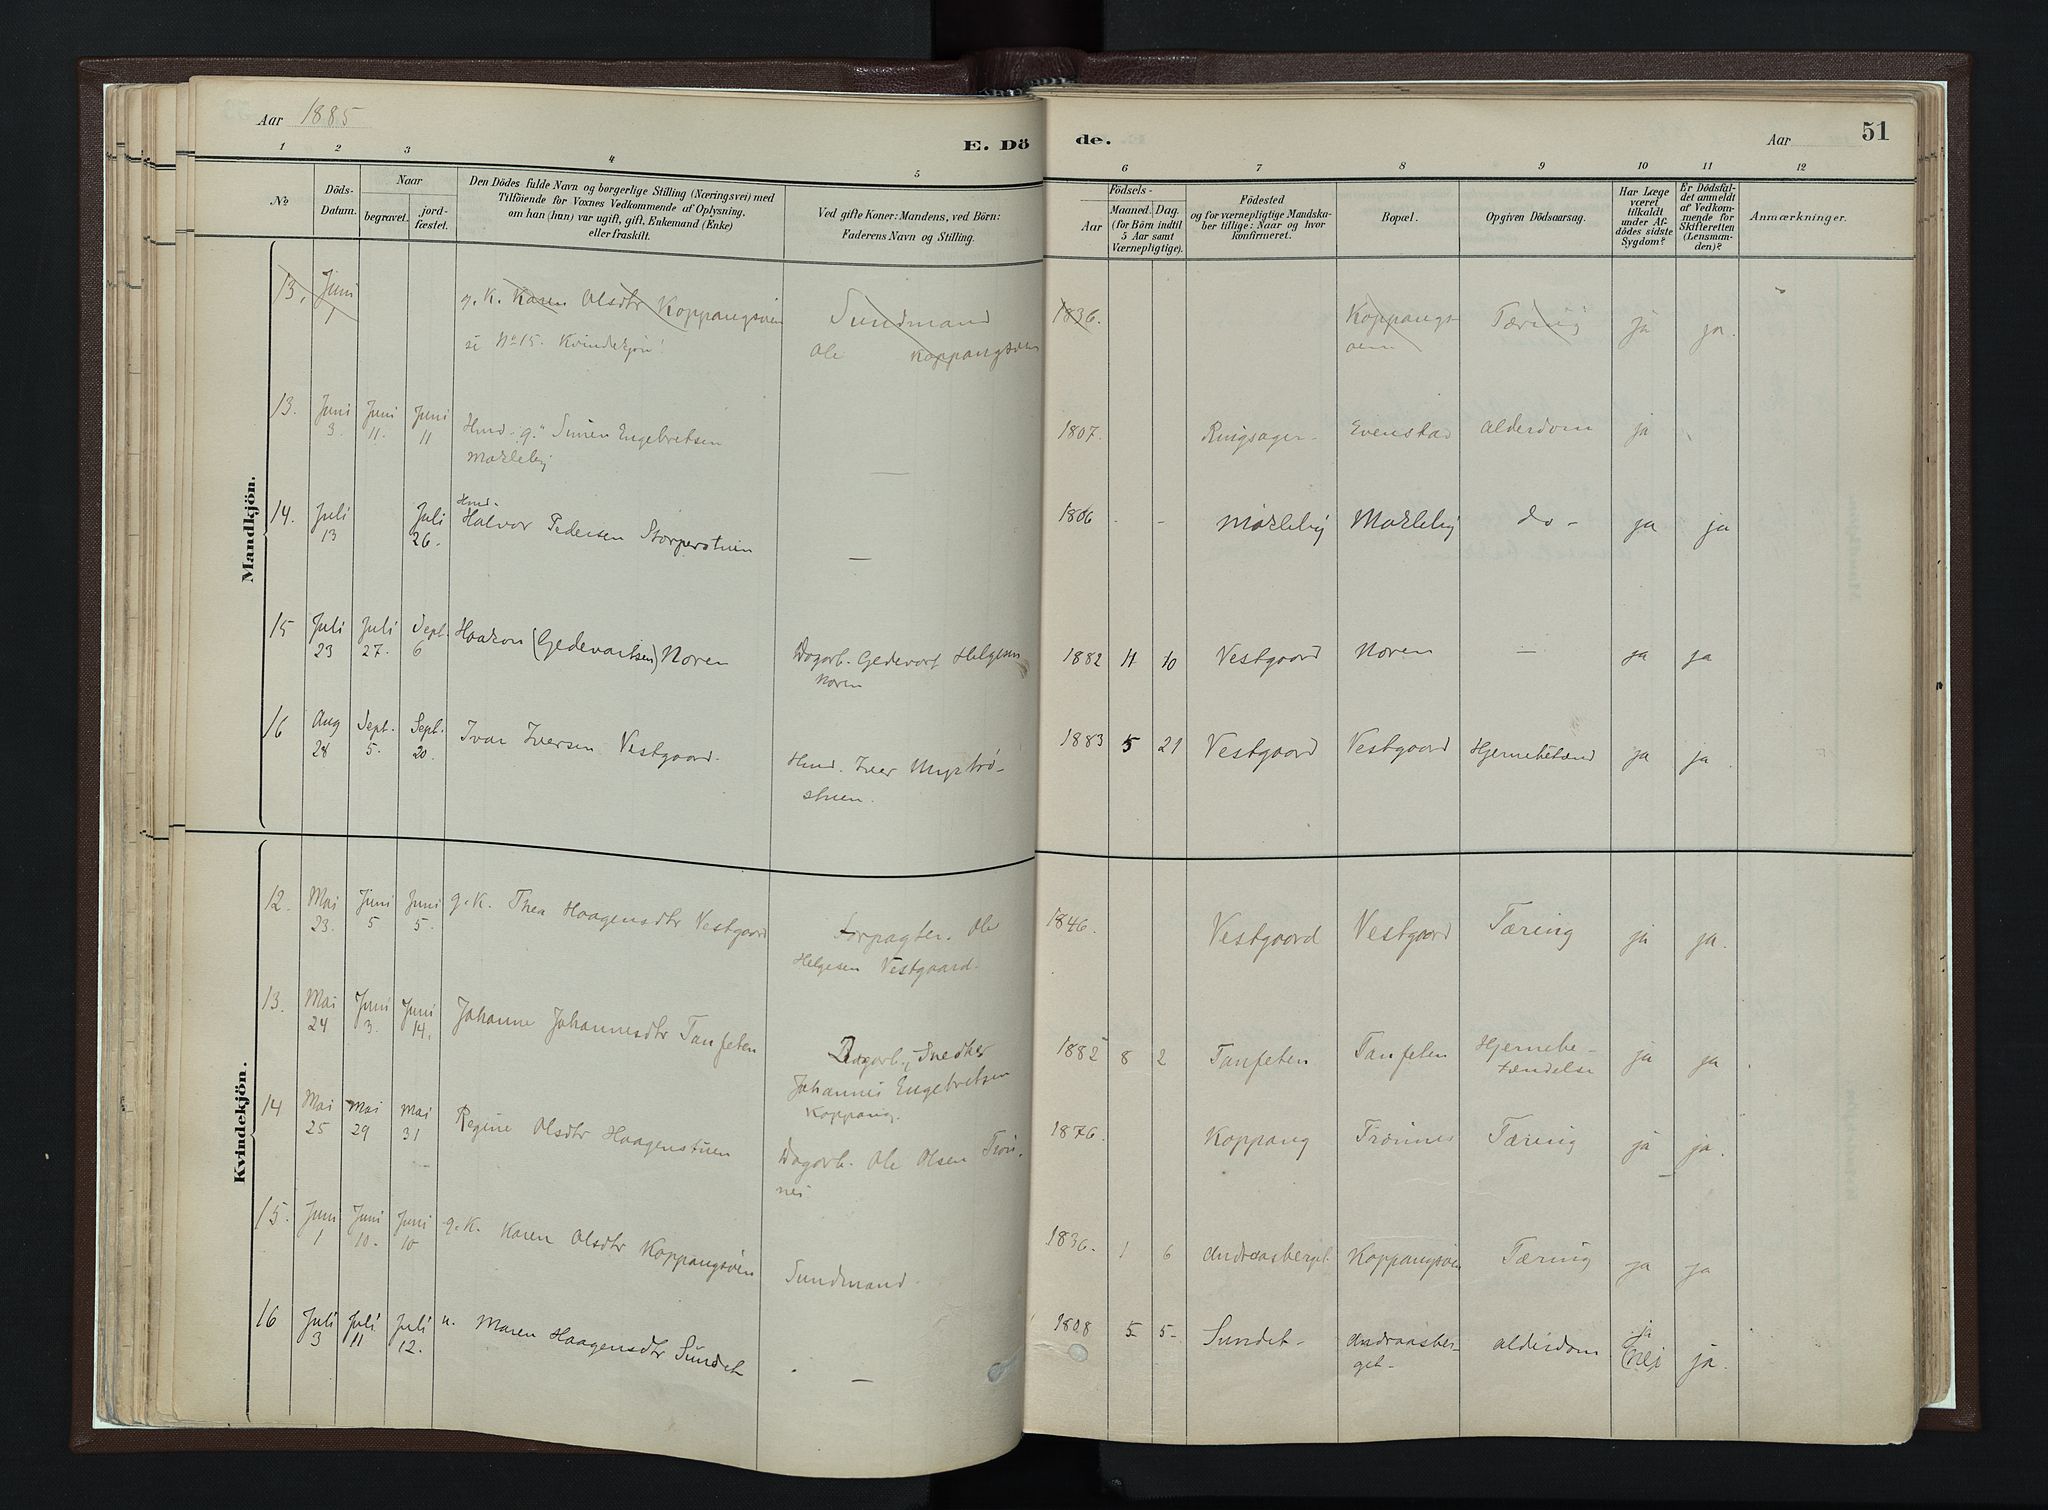 Aar 1885
E. Döde.
Aar
51
1 2 3 4 5 6 7 8 9 10 11 12
No
Döds-Datum.
Naar
begravet.
jord-fæstet.
Den Dödes fulde Navn og borgerlige Stilling (Næringsvei) med
Tilföiende for Voxnes Vedkommende af Oplysning,
om han (hun) var ugift, gift, Enkemand (Enke)
eller fraskilt.
Ved gifte Koner: Mandens, ved Börn:
Faderens Navn og Stilling.
Födsels-
Aar
Maaned. Dag.
(for Börn indtil
5 Aar samt
Værnepligtige).
Födested
og for værnepligtige Mandska-
ber tillige: Naar og hvor
konfirmeret.
Bopæl.
Opgiven Dödsaarsag.
Har Læge
været
tilkaldt
under Af-
dödes sidste
Sygdom?
Er Dödsfal-
det anmeldt
af Vedkom-
mende for
Skifteretten
(Lensman-
den)?
Anmærkninger.
Mandkjön.
13. Juni 1 g. K. Karen Olsdtr Koppangsöien Sundmand 1836. Koppangs- Tæring ja ja.
se No 15. Kvindekjön! Ole Koppangsöien
13. Juni 3. Juni 11. Juni 11 Hmd. g. Simen Engebretsen — 1807. Ringsager Evenstad Alderdom ja
Mokleby
14. Juli 13 Juli 26. Hmd. Halvor Pedersen Storperstuen — 1806 - - Mokleby Mokleby do - ja ja
15 Juli 23 Juli 27. Sept. 6 Haakon (Gedevartsen) Noren Dagarb. Gedevart Helgesen 1882 11 10 Vestgaard Noren — ja ja
Noren
16 Aug 28 Sept. 5. Sept. 20. Ivar Iversen Vestgaard. Hmd. Iver Myrbrö- 1883 5 21 Vestgaard Vestgaard Hjernebetænd ja ja
stuen.
Kvindekjön.
12. Mai 23. Juni 5 Juni 5. g. K. Thea Haagensdtr Vestgaard Forpagter. Ole 1846. Vestgaard Vestgaard Tæring ja ja.
Helgesen Vestgaard.
13. Mai 24 Juni 3. Juni 14. Johanne Johannesdtr Tanfeten Dagarb., Snedker 1882 8 2 Tanfeten Tanfeten Hjernebe- ja ja
Johannes Engebretsen tændelse
Koppang.
14 Mai 25 Mai 29 Mai 31 Regine Olsdtr Haagenstuen Dagarb. Ole Olsen Trön- 1876. Koppang Trönnes Tæring ja ja.
nes
15. Juni 1 Juni 10. Juni 10 g. K. Karen Olsdtr Koppangsöien Sundmand. 1836. 1 6 Andraasberget Koppangsöien Tæring ja ja
16 Juli 3 Juli 11 Juli 12. u. Maren Haagensdtr Sundet — 1808 5 5 Sundet Andraasber- Alderdom ja (nei ja.
get